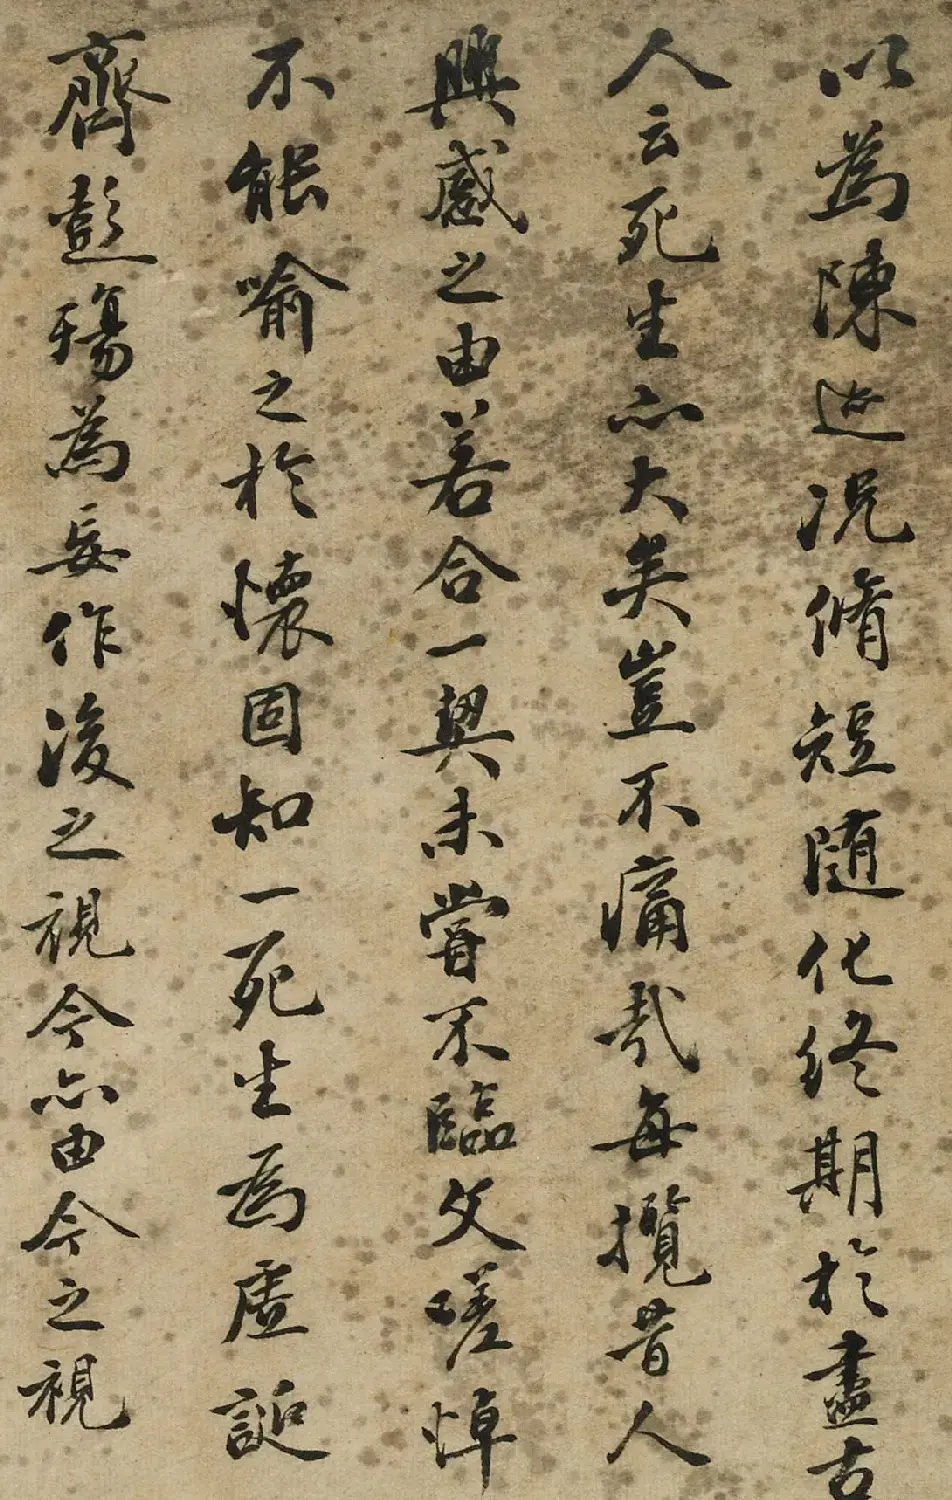 以為陳迹况脩短隨化終期於盡古
人云死生亦大矣豈不痛哉每攬昔人
興感之由若合一契未嘗不臨文嗟悼
不能喻之於懷固知一死生為虛誕
齊彭殤為妄作後之視今亦由今之視